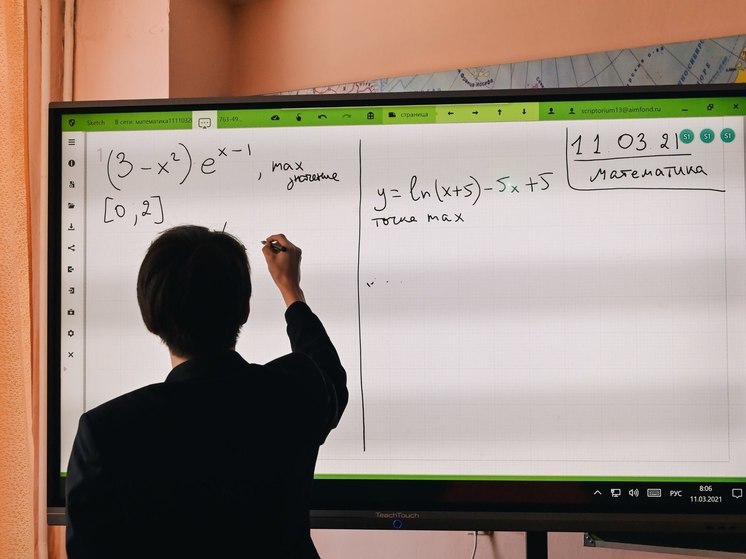 Sketch
В сети: математика11110320
763-49...
страница
scriptorium13@aimfond.ru
S1 S1 S1
(3 - x²) e^(x-1), max
значение
[0, 2]
11.03.21
математика
y = ln(x+5) - 5x + 5
точка max
РУС
8:06
11.03.2021
TeachTouch